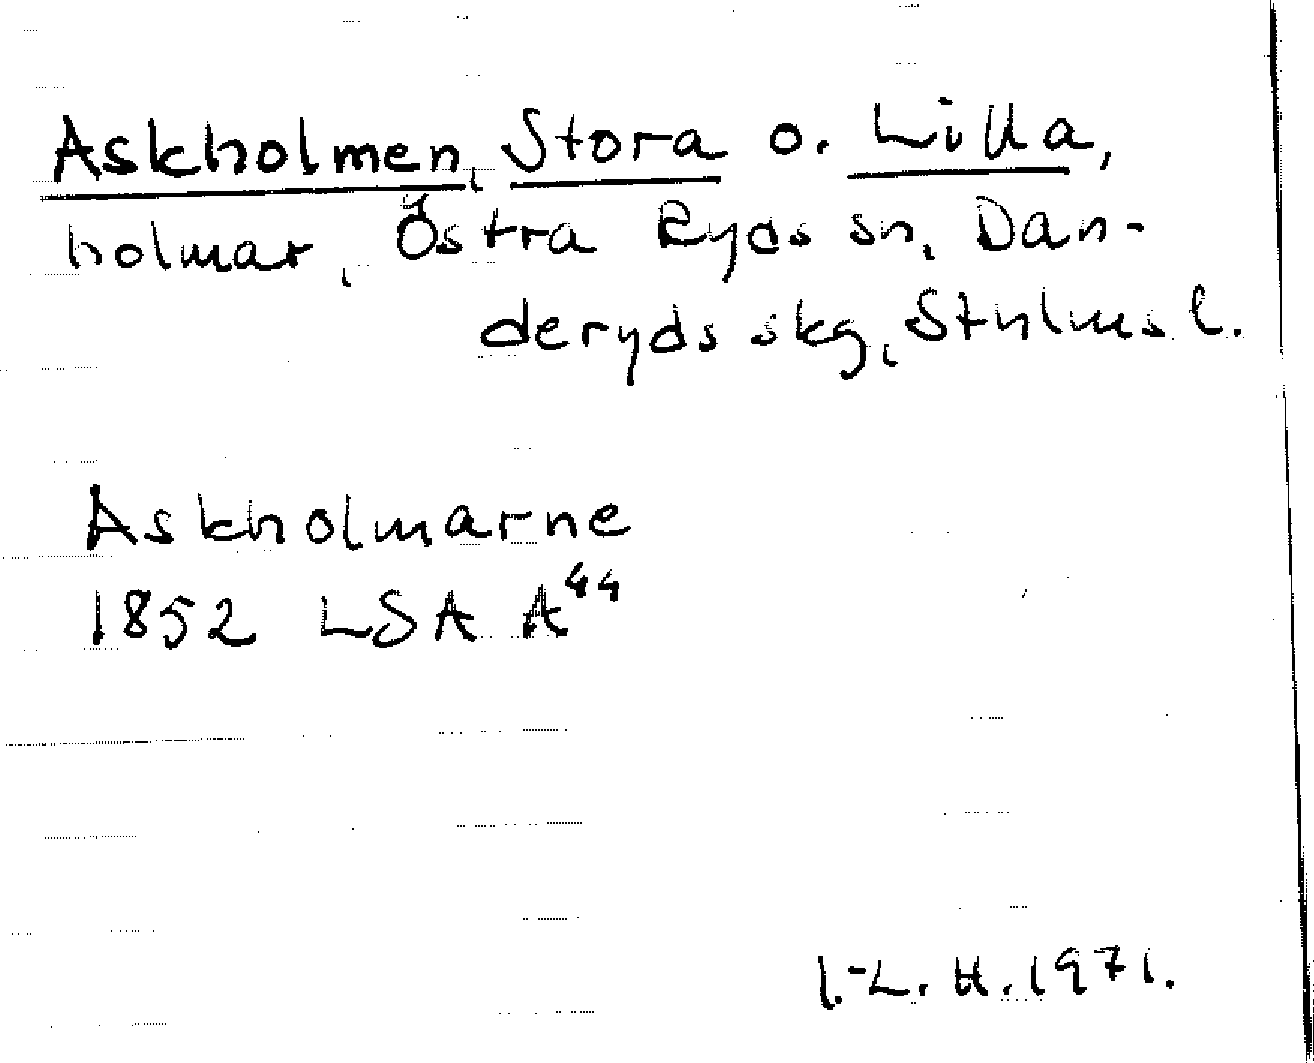 Askholmen, Stora o. Lilla,
holmar, Östra Ryds sn, Dan-
deryds skg, Sthlms l.
Askholmarne
1852 LSA A44
I.-L. H. 1971.